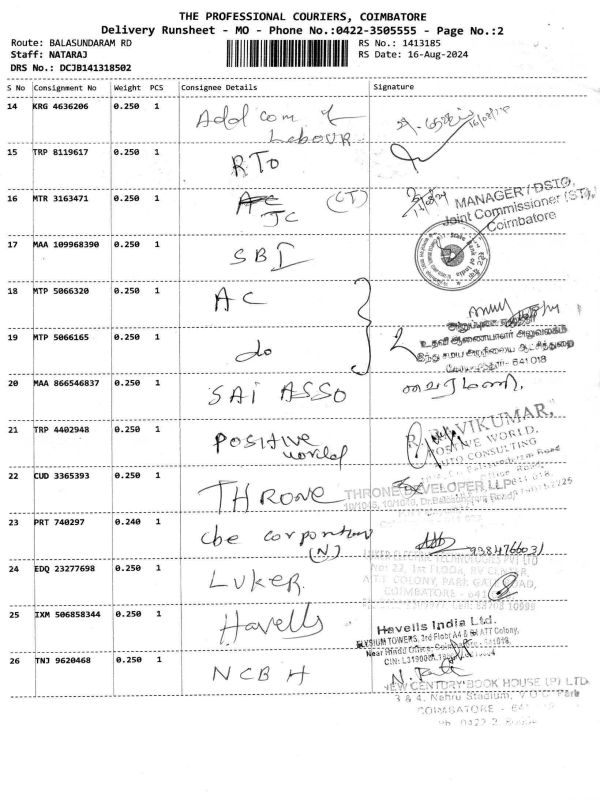 THE PROFESSIONAL COURIERS, COIMBATORE
Delivery Runsheet - MO - Phone No.:0422-3505555 - Page No.:2
Route: BALASUNDARAM RD
Staff: NATARAJ
DRS No.: DCJB141318502
RS No.: 1413185
RS Date: 16-Aug-2024
S No Consignment No Weight PCS Consignee Details Signature
14 KRG 4636206 0.250 1 Addl com of
Labour
15 TRP 8119617 0.250 1 RTO
16 MTR 3163471 0.250 1 JC (CT)
MANAGER/DSTO,
Joint Commissioner (ST),
Coimbatore
17 MAA 109968390 0.250 1 SBI
State Bank of India
18 MTP 5066320 0.250 1 AC
19 MTP 5066165 0.250 1 do 2
உதவி ஆணையாளர் அலுவலகம்
இந்து சமய அறநிலைய ஆட்சித்துறை
641 018
20 MAA 866546837 0.250 1 SAI ASSO வைரமணி.
21 TRP 4402948 0.250 1 Positive
world
R. RAVIKUMAR,
POSITIVE WORLD,
AUTO CONSULTING
22 CUD 3365393 0.250 1 THRONE
THRONE DEVELOPER LLP
23 PRT 740297 0.240 1 cbe corporation
(N)
24 EDQ 23277698 0.250 1 LUKER
No: 22, 1st FLOOR, RV CENTER,
A.T.T. COLONY, PARK GATE ROAD,
COIMBATORE - 641
25 IXM 506858344 0.250 1 Havells
Havells India Ltd.
ELYSIUM TOWERS, 3rd Floor A4 & B1 ATT Colony,
Near Hindu Office, 641018.
26 TNJ 9620468 0.250 1 NCBH
NEW CENTURY BOOK HOUSE (P) LTD
3 & 4, Nehru Stadium, V O C Park
COIMBATORE - 641